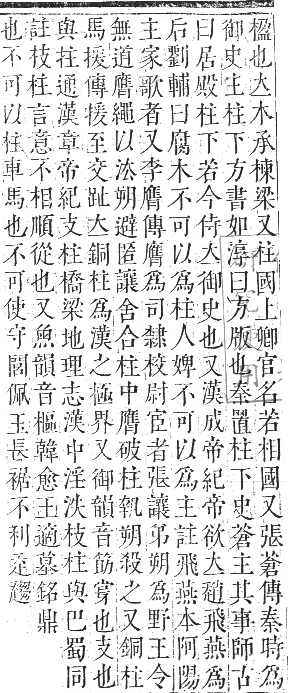 楹也大木承棟梁又柱國上卿官名若相國又張蒼傳秦時爲
御史主柱下方書如淳曰方版也秦置柱下史蒼主其事師古
曰居殿柱下若今侍大御史也又漢成帝紀帝欲大趙飛燕爲
后劉輔曰腐木不可以爲柱人婢不可以爲主註飛燕本阿陽
主家歌者又李膺傳膺爲司隸校尉宦者張讓弟朔爲野王令
無道膺繩以法朔避匿讓舍合柱中膺破柱執朔殺之又銅柱
馬援傳援至交趾大銅柱爲漢之極界又御韻音筯牚也支也
與柱通漢章帝紀支柱橋梁地理志漢中淫泆枝柱與巴蜀同
註枝柱言意不相順從也又魚韻音樞韓愈王適墓銘鼎
也不可以柱車馬也不可使守閽佩玉長裾不利走趨